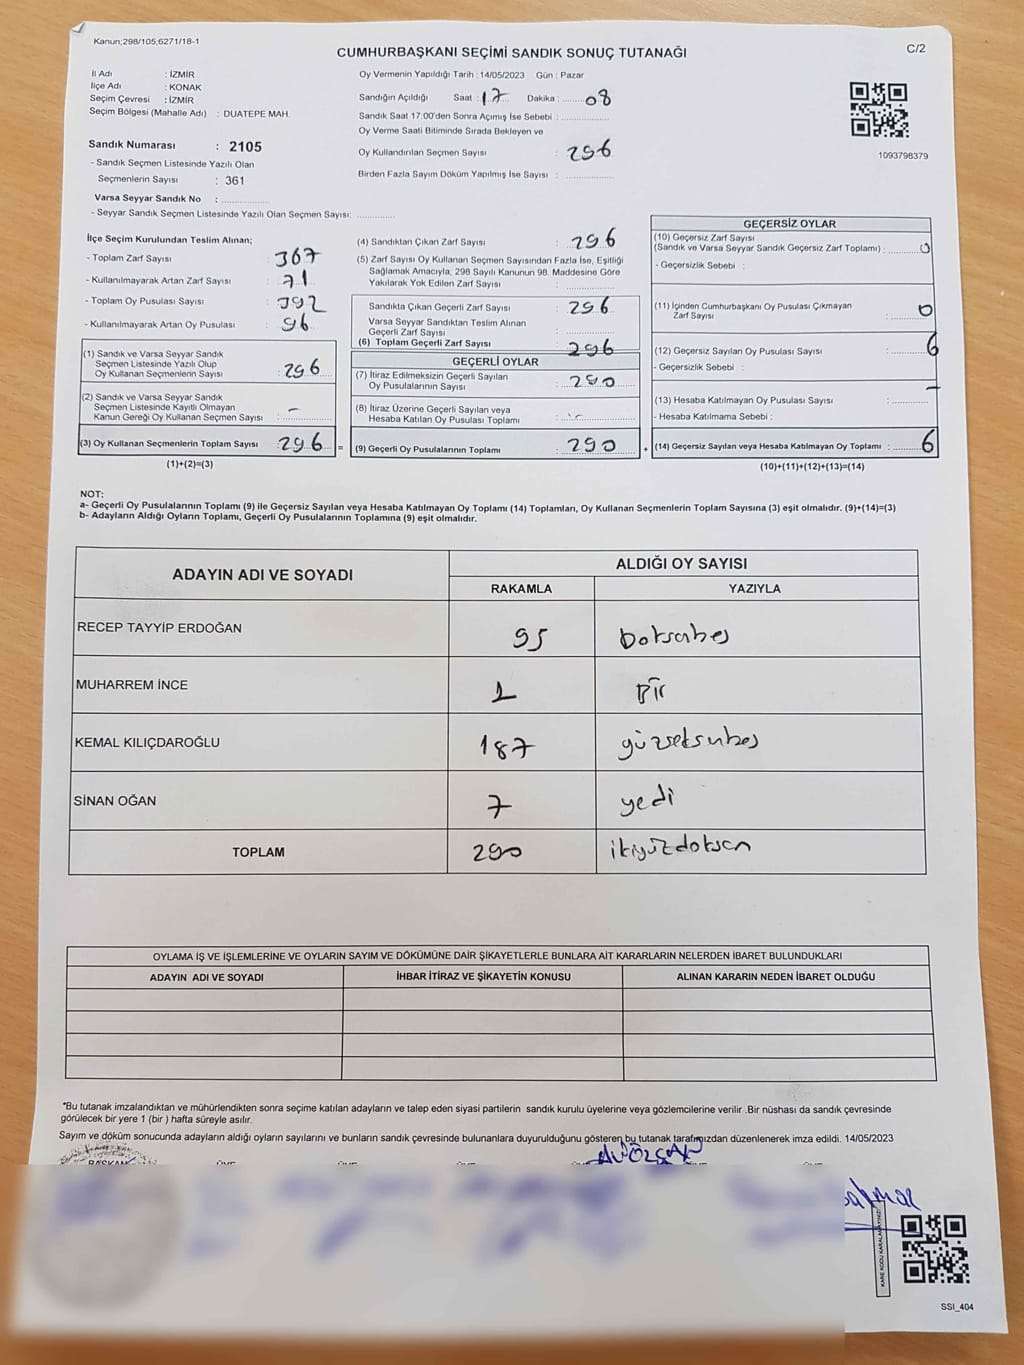 Kanun;298/105;6271/18-1
CUMHURBAŞKANI SEÇİMİ SANDIK SONUÇ TUTANAĞI
C/2
İl Adı : İZMİR
İlçe Adı : KONAK
Seçim Çevresi : İZMİR
Seçim Bölgesi (Mahalle Adı) : DUATEPE MAH.
Sandık Numarası : 2105
- Sandık Seçmen Listesinde Yazılı Olan
Seçmenlerin Sayısı : 361
Varsa Seyyar Sandık No :
- Seyyar Sandık Seçmen Listesinde Yazılı Olan Seçmen Sayısı:
Oy Vermenin Yapıldığı Tarih : 14/05/2023 Gün : Pazar
Sandığın Açıldığı Saat : 17 Dakika : 08
Sandık Saat 17:00'den Sonra Açımış İse Sebebi :
Oy Verme Saati Bitiminde Sırada Bekleyen ve
Oy Kullandırılan Seçmen Sayısı : 296
Birden Fazla Sayım Döküm Yapılmış İse Sayısı :
1093798379
İlçe Seçim Kurulundan Teslim Alınan;
- Toplam Zarf Sayısı : 367
- Kullanılmayarak Artan Zarf Sayısı : 71
- Toplam Oy Pusulası Sayısı : 392
- Kullanılmayarak Artan Oy Pusulası : 96
(1) Sandık ve Varsa Seyyar Sandık
Seçmen Listesinde Yazılı Olup
Oy Kullanan Seçmenlerin Sayısı : 296
(2) Sandık ve Varsa Seyyar Sandık
Seçmen Listesinde Kayıtlı Olmayan
Kanun Gereği Oy Kullanan Seçmen Sayısı : -
(3) Oy Kullanan Seçmenlerin Toplam Sayısı : 296 =
(1)+(2)=(3)
(4) Sandıktan Çıkan Zarf Sayısı : 296
(5) Zarf Sayısı Oy Kullanan Seçmen Sayısından Fazla İse, Eşitliği
Sağlamak Amacıyla; 298 Sayılı Kanunun 98. Maddesine Göre
Yakılarak Yok Edilen Zarf Sayısı :
Sandıkta Çıkan Geçerli Zarf Sayısı : 296
Varsa Seyyar Sandıktan Teslim Alınan
Geçerli Zarf Sayısı :
(6) Toplam Geçerli Zarf Sayısı : 296
GEÇERLİ OYLAR
(7) İtiraz Edilmeksizin Geçerli Sayılan
Oy Pusulalarının Sayısı : 290
(8) İtiraz Üzerine Geçerli Sayılan veya
Hesaba Katılan Oy Pusulası Toplamı :
(9) Geçerli Oy Pusulalarının Toplamı : 290 +
GEÇERSİZ OYLAR
(10) Geçersiz Zarf Sayısı
(Sandık ve Varsa Seyyar Sandık Geçersiz Zarf Toplamı) : 0
- Geçersizlik Sebebi :
(11) İçinden Cumhurbaşkanı Oy Pusulası Çıkmayan
Zarf Sayısı : 0
(12) Geçersiz Sayılan Oy Pusulası Sayısı : 6
- Geçersizlik Sebebi :
(13) Hesaba Katılmayan Oy Pusulası Sayısı : -
- Hesaba Katılmama Sebebi :
(14) Geçersiz Sayılan veya Hesaba Katılmayan Oy Toplamı : 6
(10)+(11)+(12)+(13)=(14)
NOT:
a- Geçerli Oy Pusulalarının Toplamı (9) ile Geçersiz Sayılan veya Hesaba Katılmayan Oy Toplamı (14) Toplamları, Oy Kullanan Seçmenlerin Toplam Sayısına (3) eşit olmalıdır. (9)+(14)=(3)
b- Adayların Aldığı Oyların Toplamı, Geçerli Oy Pusulalarının Toplamına (9) eşit olmalıdır.
ADAYIN ADI VE SOYADI
ALDIĞI OY SAYISI
RAKAMLA YAZIYLA
RECEP TAYYİP ERDOĞAN 95 doksanbeş
MUHARREM İNCE 1 Bir
KEMAL KILIÇDAROĞLU 187
SİNAN OĞAN 7 yedi
TOPLAM 290 ikiyüzdoksan
OYLAMA İŞ VE İŞLEMLERİNE VE OYLARIN SAYIM VE DÖKÜMÜNE DAİR ŞİKAYETLERLE BUNLARA AİT KARARLARIN NELERDEN İBARET BULUNDUKLARI
ADAYIN ADI VE SOYADI İHBAR İTİRAZ VE ŞİKAYETİN KONUSU ALINAN KARARIN NEDEN İBARET OLDUĞU
*Bu tutanak imzalandıktan ve mühürlendikten sonra seçime katılan adayların ve talep eden siyasi partilerin sandık kurulu üyelerine veya gözlemcilerine verilir .Bir nüshası da sandık çevresinde
görülecek bir yere 1 (bir ) hafta süreyle asılır.
Sayım ve döküm sonucunda adayların aldığı oyların sayılarını ve bunların sandık çevresinde bulunanlara duyurulduğunu gösteren bu tutanak tarafımızdan düzenlenerek imza edildi. 14/05/2023
BAŞKAN
SSI_404